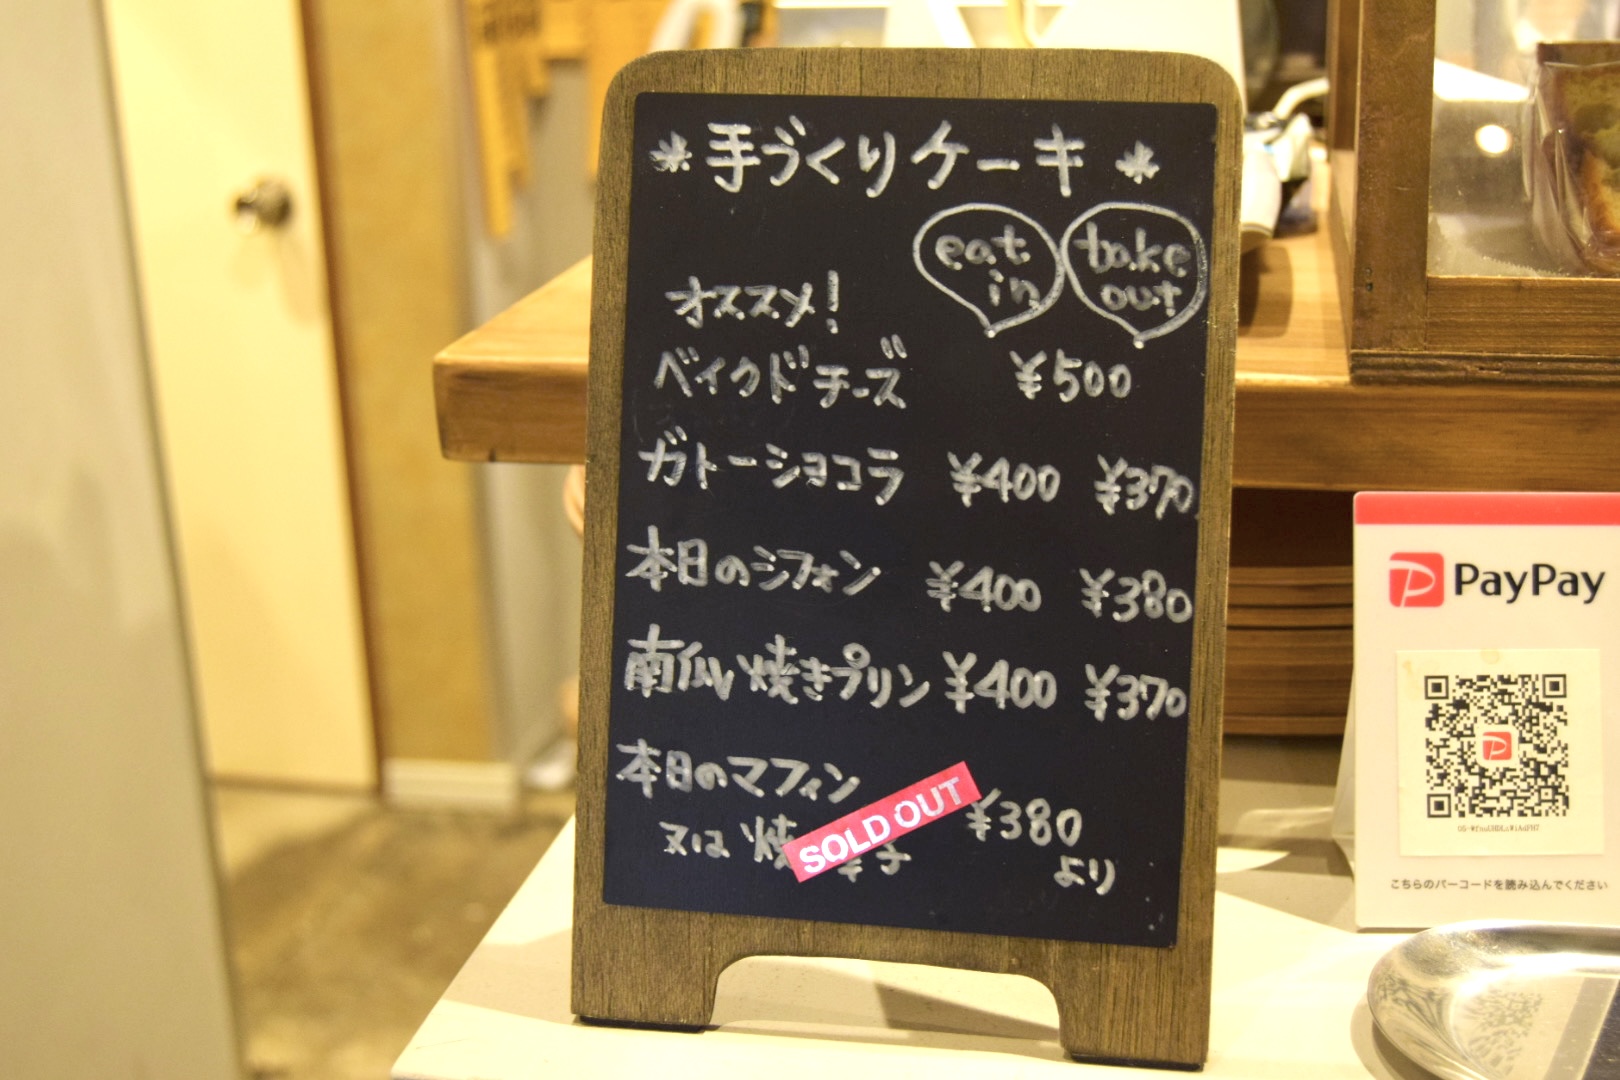 *手づくりケーキ*
eat in
take out
オススメ!
ベイクドチーズ ¥500
ガトーショコラ ¥400 ¥370
本日のシフォン ¥400 ¥380
南瓜焼きプリン ¥400 ¥370
本日のマフィン
又は 焼 子 ¥380
より
SOLD OUT
PayPay
こちらのバーコードを読み込んでください